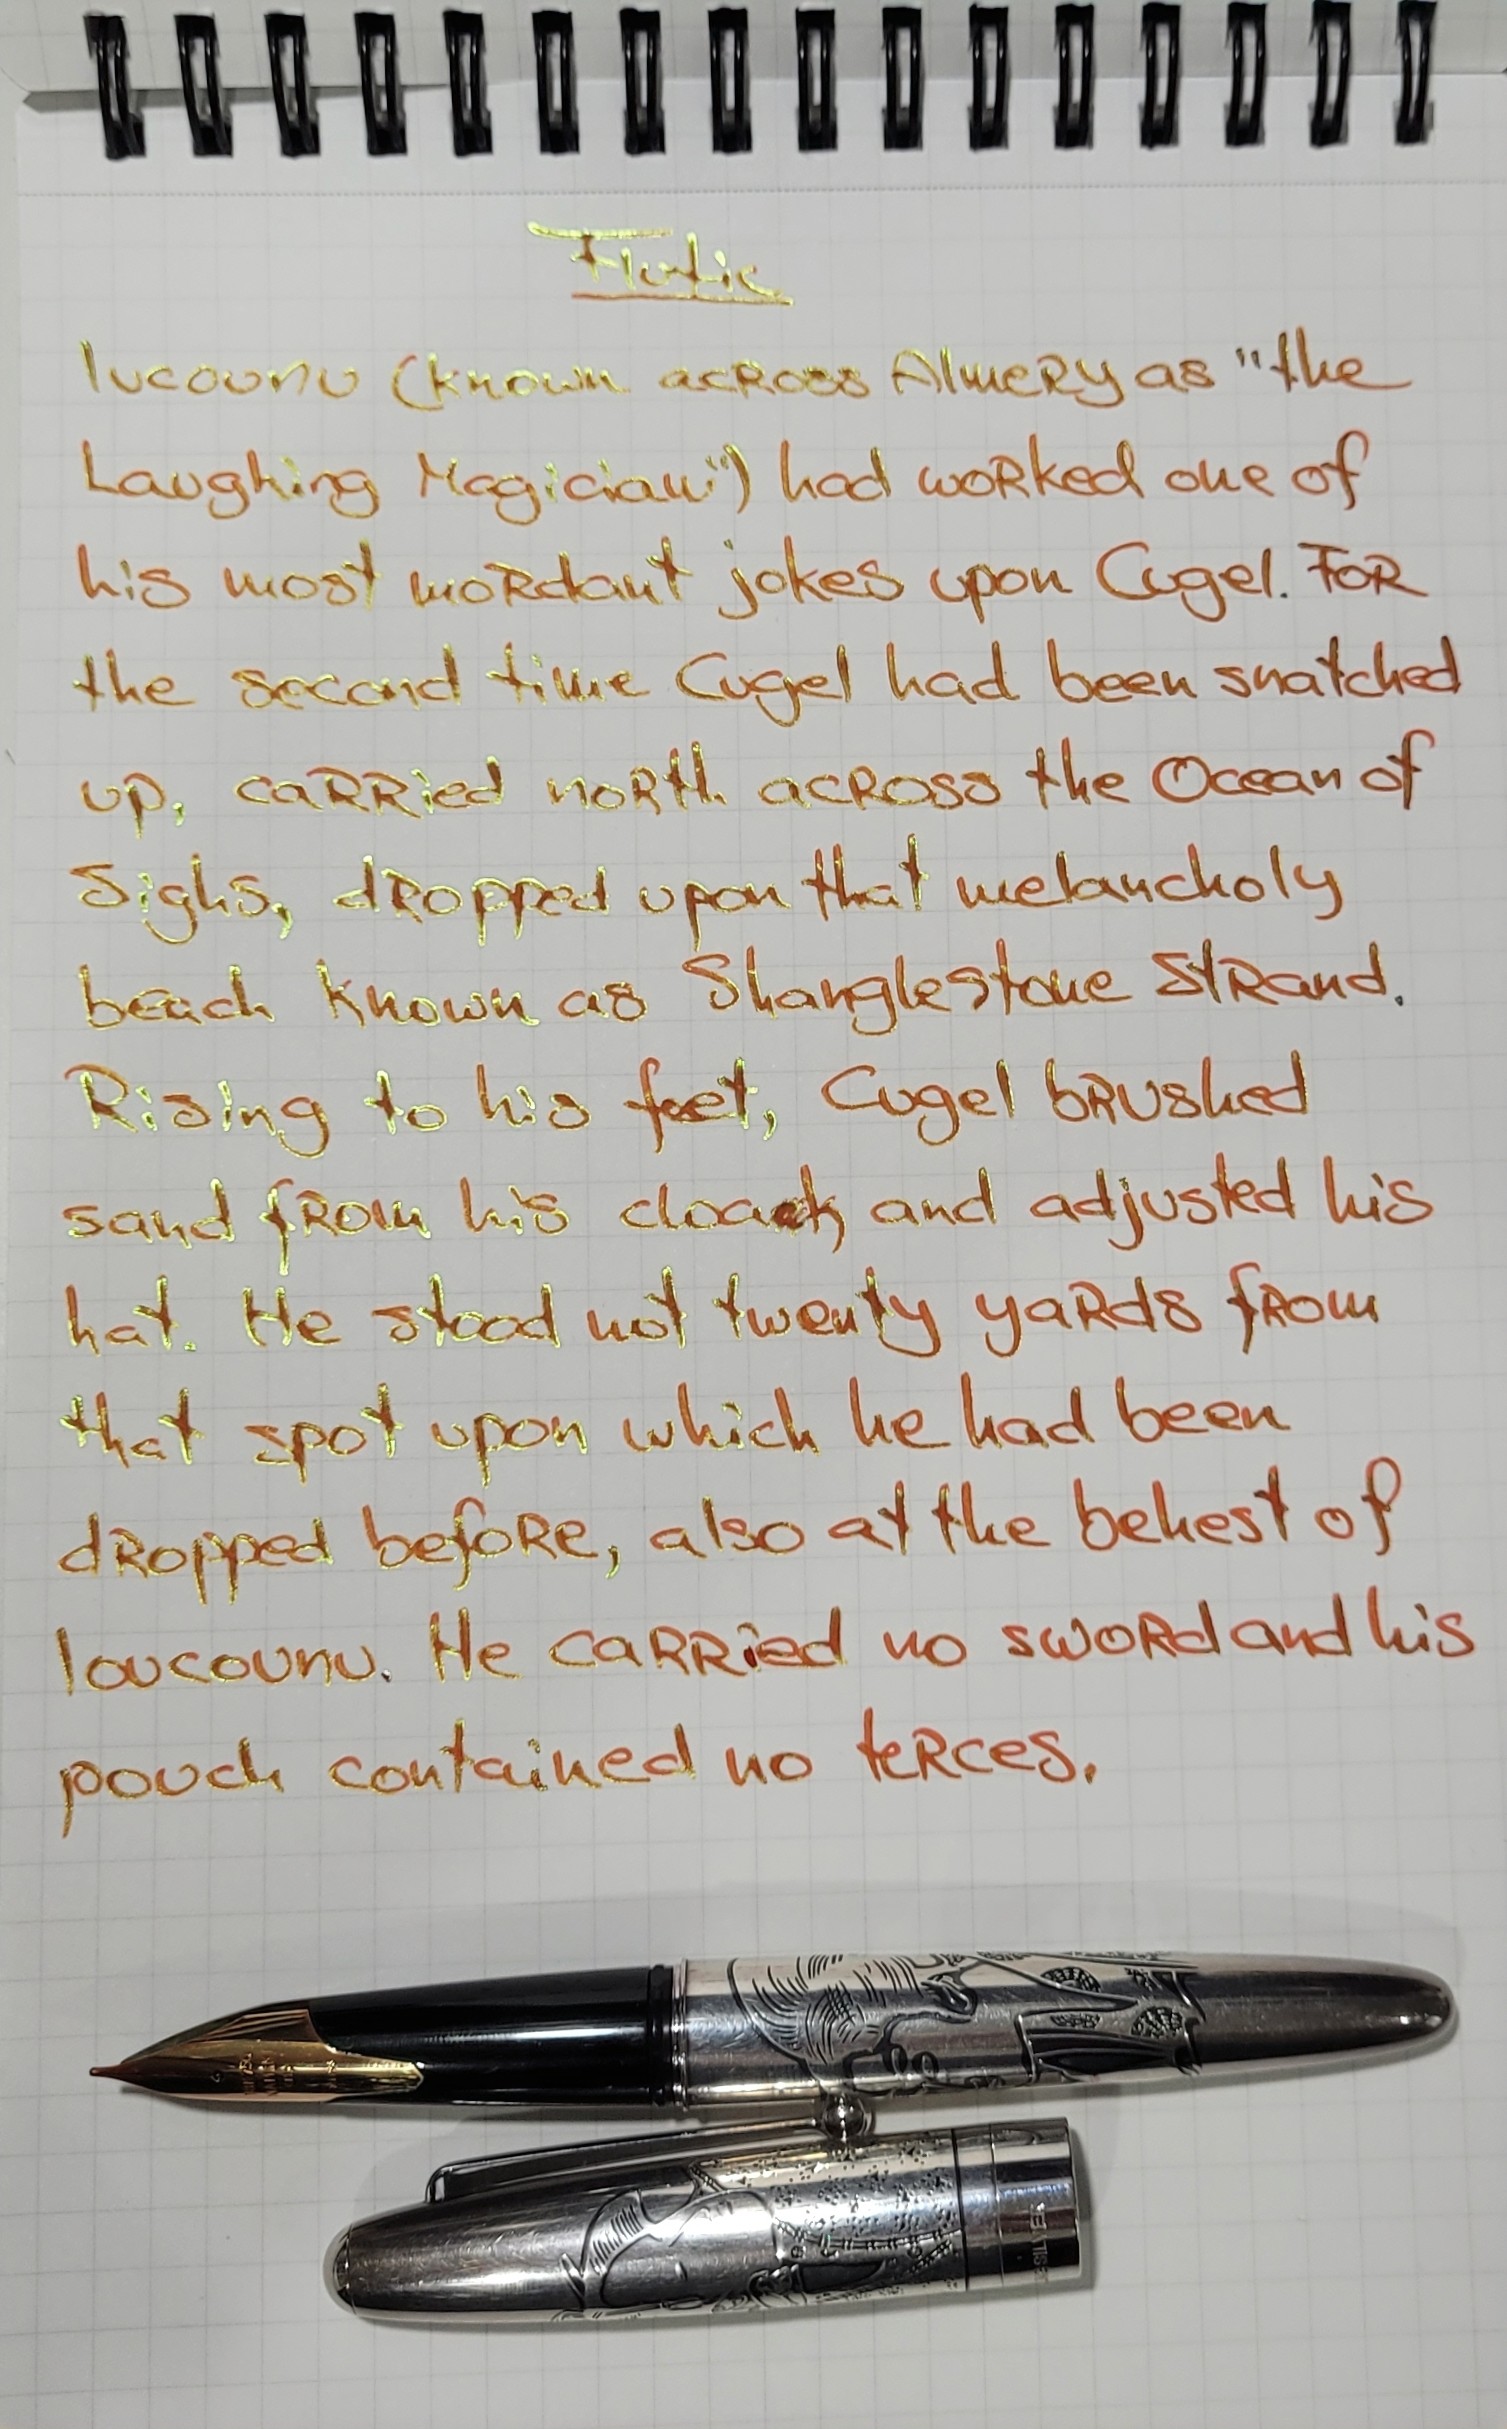 Flutic
Iucounu (known across Almery as "the
Laughing Magician") had worked one of
his most mordant jokes upon Cugel. For
the second time Cugel had been snatched
up, carried north across the Ocean of
Sighs, dropped upon that melancholy
beach known as Shanglestone Strand.
Rising to his feet, Cugel brushed
sand from his cloack and adjusted his
hat. He stood not twenty yards from
that spot upon which he had been
dropped before, also at the behest of
Ioucounu. He carried no sword and his
pouch contained no terces.